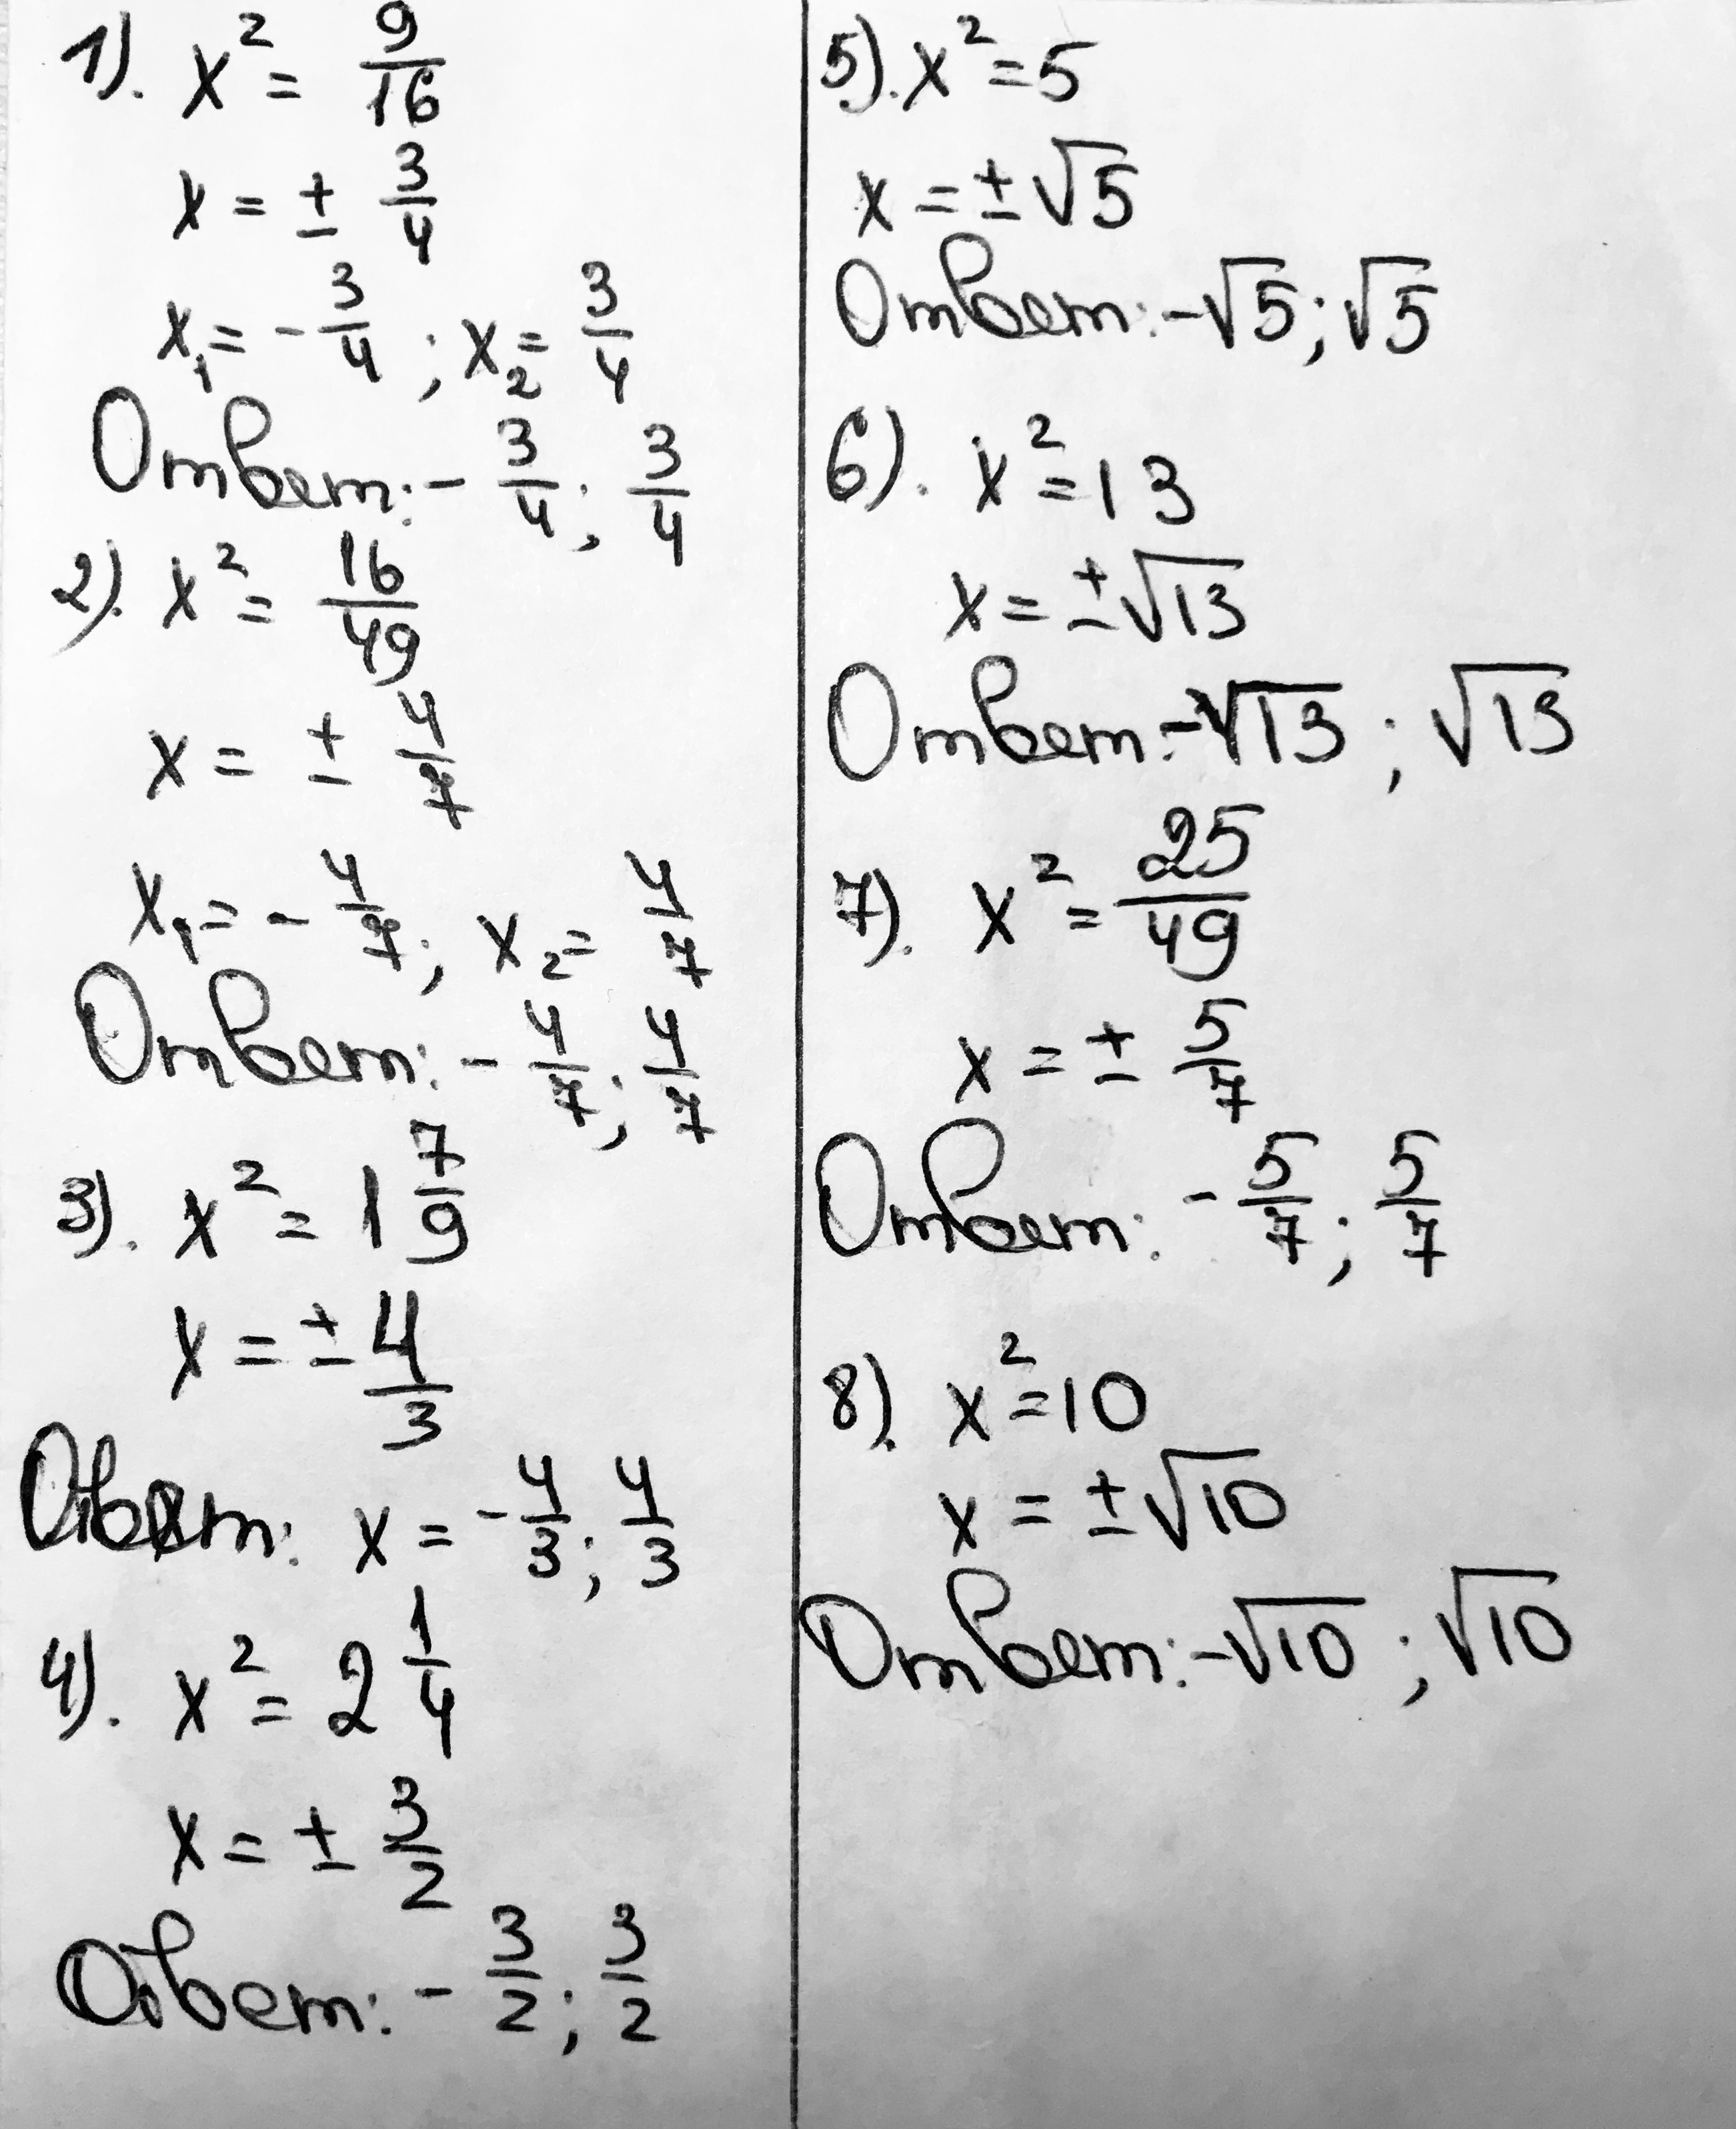 1). x² = 9/16
x = ± 3/4
x₁ = - 3/4 ; x₂ = 3/4
Ответ: - 3/4 ; 3/4
2). x² = 16/49
x = ± 4/7
x₁ = - 4/7 ; x₂ = 4/7
Ответ: - 4/7 ; 4/7
3). x² = 1 7/9
x = ± 4/3
Ответ: x = - 4/3 ; 4/3
4). x² = 2 1/4
x = ± 3/2
Ответ: - 3/2 ; 3/2
5). x² = 5
x = ± √5
Ответ: -√5 ; √5
6). x² = 13
x = ± √13
Ответ: -√13 ; √13
7). x² = 25/49
x = ± 5/7
Ответ: - 5/7 ; 5/7
8). x² = 10
x = ± √10
Ответ: -√10 ; √10